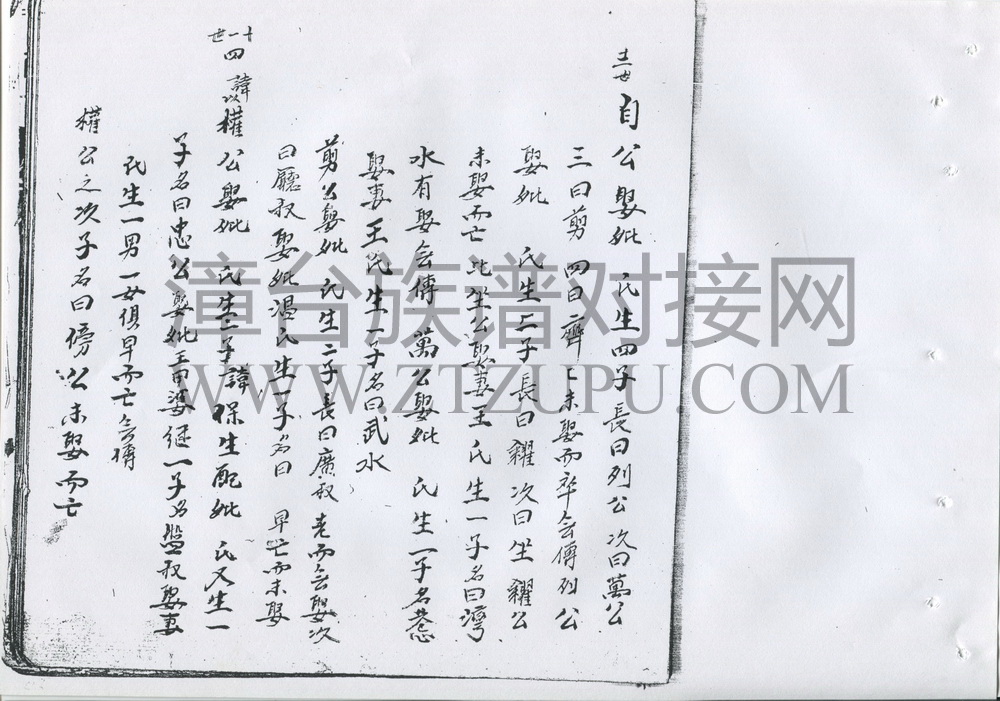 十二世 自公娶妣 氏生四子長曰列公次曰萬公
三曰剪 四曰二齊 未娶而卒 傳列公
娶妣 氏生二子長曰糴次曰坐糴公
未娶而亡 坐公娶妻王氏生一子名曰灣
水有娶 傳萬公娶妣 氏生一子名
娶妻王氏生一子名曰武水
剪公娶妣 氏生二子長曰廣叔 老而 娶次
曰廳叔娶妣溫氏生一子名曰 早亡而未娶
十一世 四 諱 權公娶妣 氏生二子 諱保生配妣 氏又生一
子名曰忠公娶妣 繼一子名盤叔娶妻
氏生一男一女俱早而亡 傳
權公之次子名曰傍公未娶而亡
漳台族谱对接网
WWW.ZTZUPU.COM